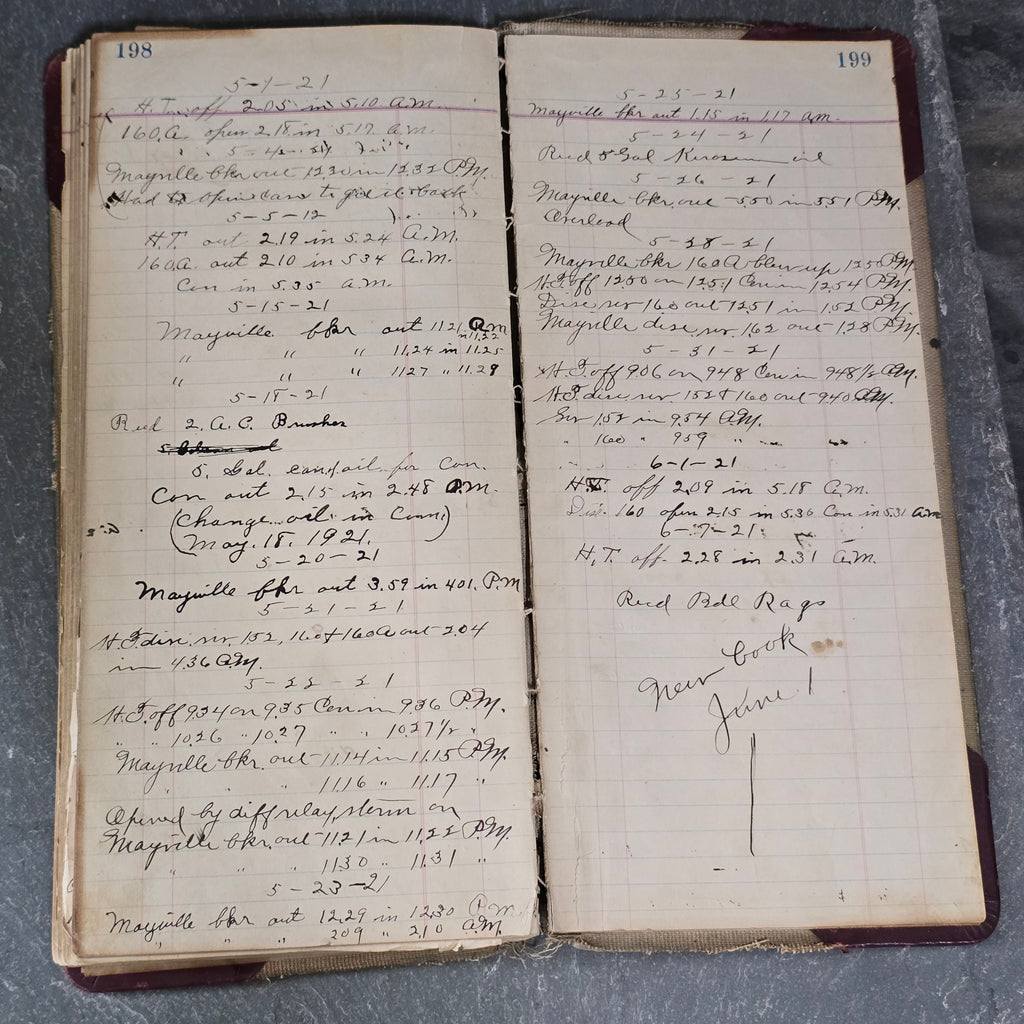 198
5-1-21
H.T. off 2.05 in 5.10 A.M.
160.A. open 2.18 in 5.17 A.M.
Mayville bkr out 12.30 in 12.32 P.M.
(Had to open cans to get it back
5-5-12
H.T. out 2.19 in 5.24 A.M.
160A. out 2.10 in 5.34 A.M.
Con in 5.35 A.M.
5-15-21
Mayville bkr out 11.21 A.M.
in 11.22
" " " 11.24 in 11.25
" " " 11.27 " 11.29
5-18-21
Recd 2. A.C. Brushes
5. Gal. oil for Con.
Con out 2.15 in 2.48 P.M.
(Change oil in Conn)
May. 18. 1921.
5-20-21
Mayville bkr out 3.59 in 4.01. P.M
5-21-21
H.T. disc. sw. 152, 160 & 160A out 2.04
in 4.36 A.M.
5-22-21
H.T. off 9.34 on 9.35 Con in 9.36 P.M.
" " 10.26 " 10.27 " " 10.27 1/2 "
Mayville bkr. out 11.14 in 11.15 P.M.
" 11.16 " 11.17 "
Opened by diff relay, storm on
Mayville bkr. out 11.21 in 11.22 P.M.
" " " 11.30 " 11.31 "
5-23-21
Mayville bkr out 12.29 in 12.30 P.M.
" " " 2.09 " 2.10 A.M.
199
5-25-21
Mayville bkr out 1.15 in 1.17 a.m.
5-24-21
Recd 5 Gal Kerosene oil
5-26-21
Mayville bkr. out 5.50 in 5.51 P.M.
Overload
5-28-21
Mayville bkr 160A blew up 12.50 P.M.
H.T. off 12.50 on 12.51 Con in 12.54 P.M.
Disc sw 160 out 12.51 in 1.52 P.M.
Mayville disc. sw. 162 out 1.28 P.M.
5-31-21
H.T. off 9.06 on 9.48 Con in 9.48 1/2 A.M.
H.T. disc sw 152 & 160 out 9.40 A.M.
Sw 152 in 9.54 A.M.
" 160 " 9.59 " "
6-1-21
H.T. off 2.09 in 5.18 A.M.
Dis. 160 open 2.15 in 5.36 Con in 5.31 a.m
6-7-21
H.T. off. 2.28 in 2.31 A.M.
Recd Bdl Rags
New book
June 1